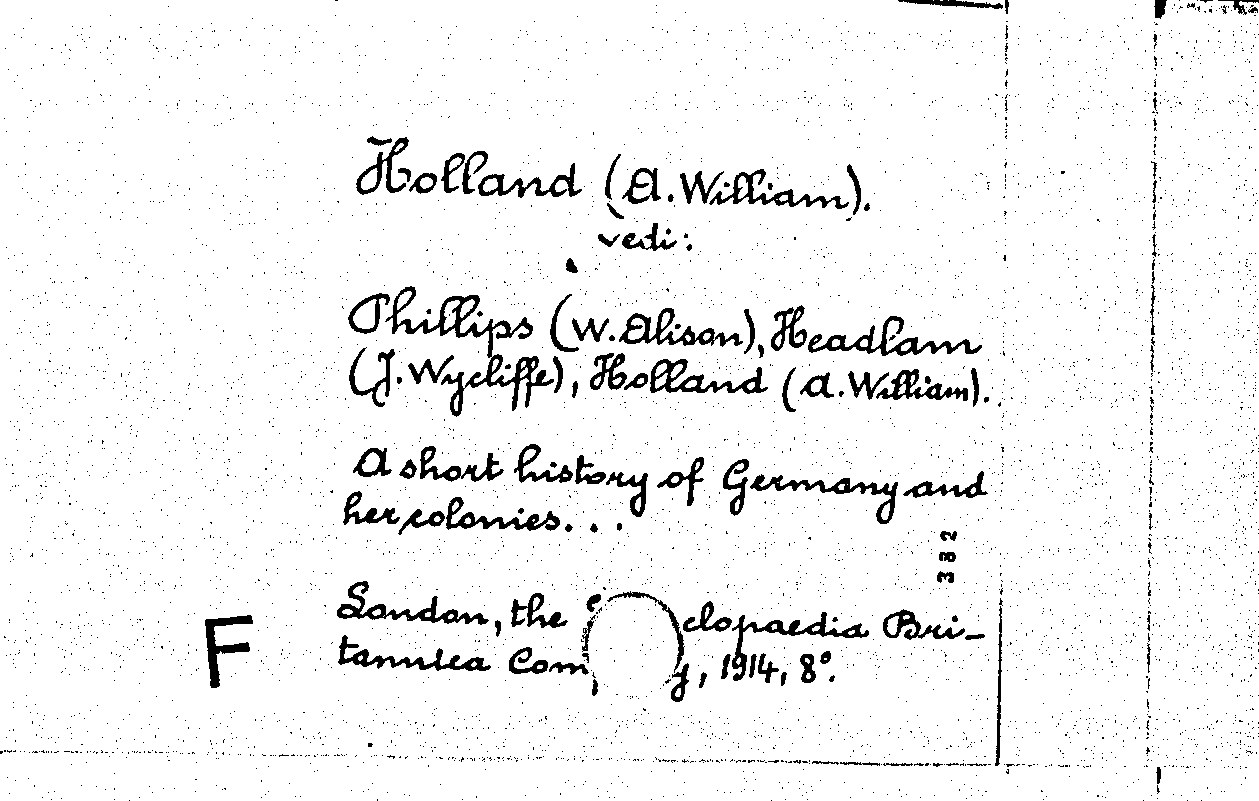 Holland (A. William).
vedi:
Phillips (W. Alison), Headlam
(J. Wycliffe), Holland (A. William).
A short history of Germany and
her colonies...
382
London, the clopaedia Bri-
tannica Com y, 1914, 8°.
F